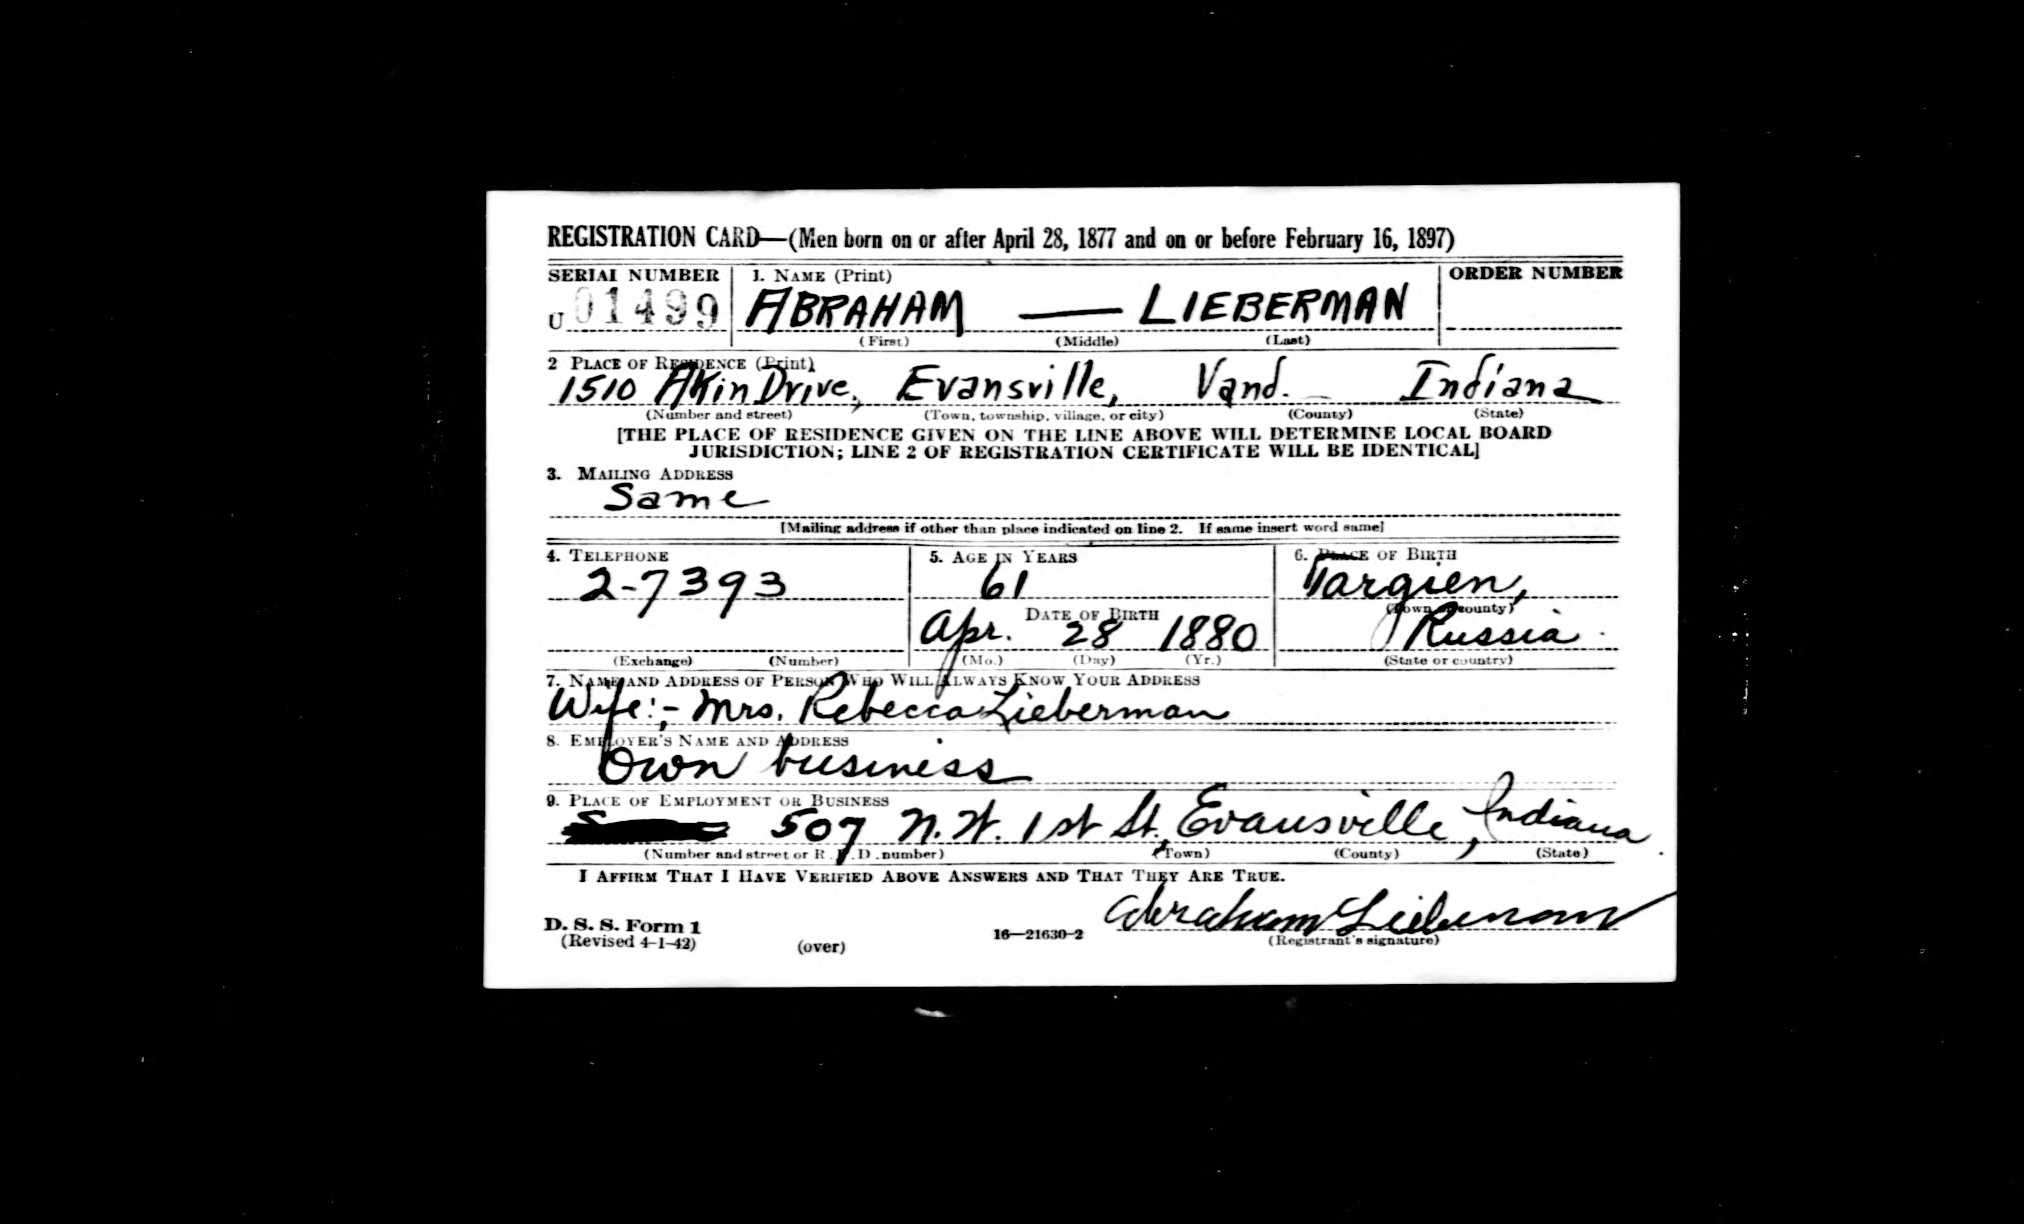 REGISTRATION CARD—(Men born on or after April 28, 1877 and on or before February 16, 1897)
SERIAL NUMBER 1. NAME (Print) ORDER NUMBER
U 01499 ABRAHAM — LIEBERMAN
(First) (Middle) (Last)
2 PLACE OF RESIDENCE (Print)
1510 Akin Drive, Evansville, Vand. Indiana
(Number and street) (Town, township, village, or city) (County) (State)
[THE PLACE OF RESIDENCE GIVEN ON THE LINE ABOVE WILL DETERMINE LOCAL BOARD
JURISDICTION; LINE 2 OF REGISTRATION CERTIFICATE WILL BE IDENTICAL]
3. MAILING ADDRESS
Same
[Mailing address if other than place indicated on line 2. If same insert word same]
4. TELEPHONE 5. AGE IN YEARS 6. PLACE OF BIRTH
2-7393 61
DATE OF BIRTH (Town or county)
Apr. 28 1880 Russia
(Exchange) (Number) (Mo.) (Day) (Yr.) (State or country)
7. NAME AND ADDRESS OF PERSON WHO WILL ALWAYS KNOW YOUR ADDRESS
Wife:- Mrs. Rebecca Lieberman
8. EMPLOYER'S NAME AND ADDRESS
Own business
9. PLACE OF EMPLOYMENT OR BUSINESS
507 N.W. 1st St., Evansville, Indiana
(Number and street or R. F. D. number) (Town) (County) (State)
I AFFIRM THAT I HAVE VERIFIED ABOVE ANSWERS AND THAT THEY ARE TRUE.
Abraham Lieberman
D. S. S. Form 1
(Revised 4-1-42) (over) 16—21630-2 (Registrant's signature)